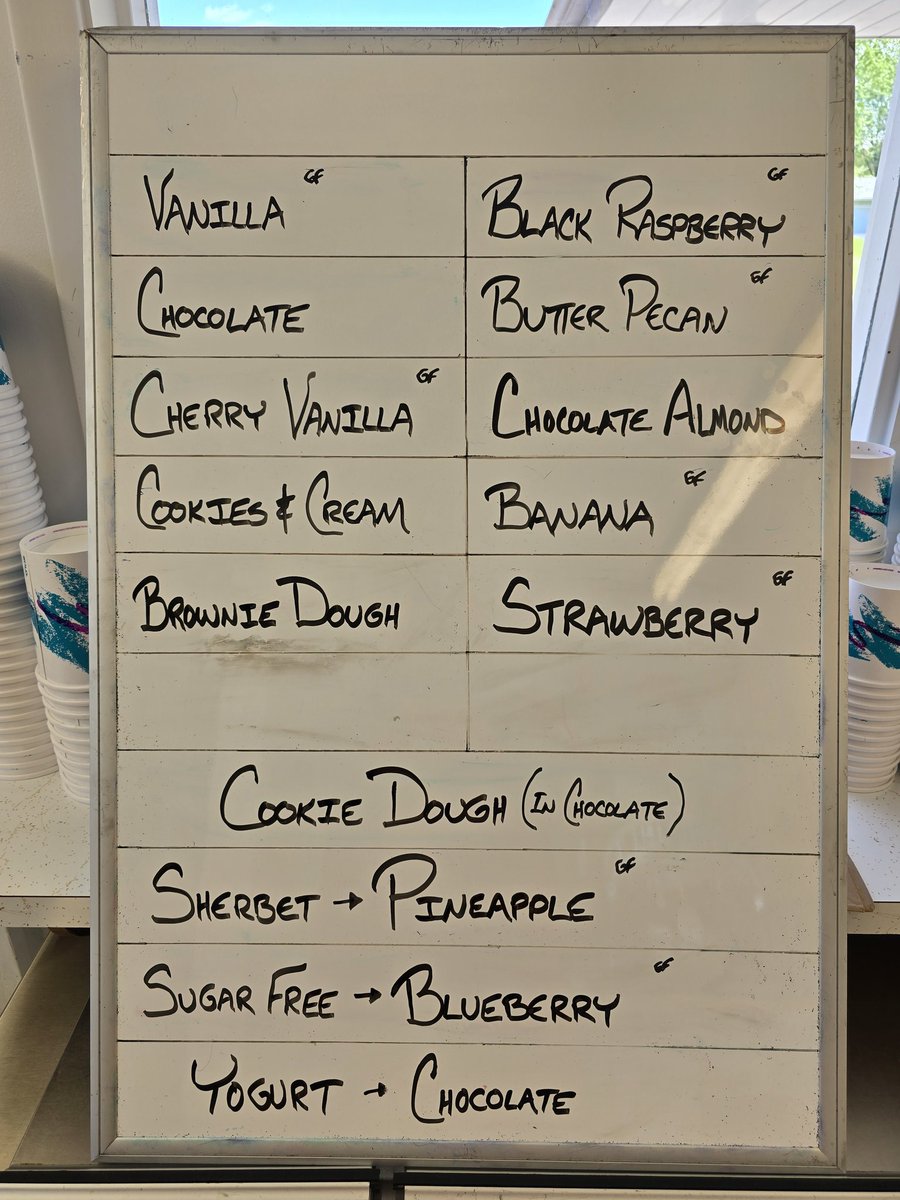 VANILLA GF
BLACK RASPBERRY GF
CHOCOLATE
BUTTER PECAN GF
CHERRY VANILLA GF
CHOCOLATE ALMOND
COOKIES & CREAM
BANANA GF
BROWNIE DOUGH
STRAWBERRY GF
COOKIE DOUGH (IN CHOCOLATE)
SHERBET → PINEAPPLE GF
SUGAR FREE → BLUEBERRY GF
YOGURT → CHOCOLATE